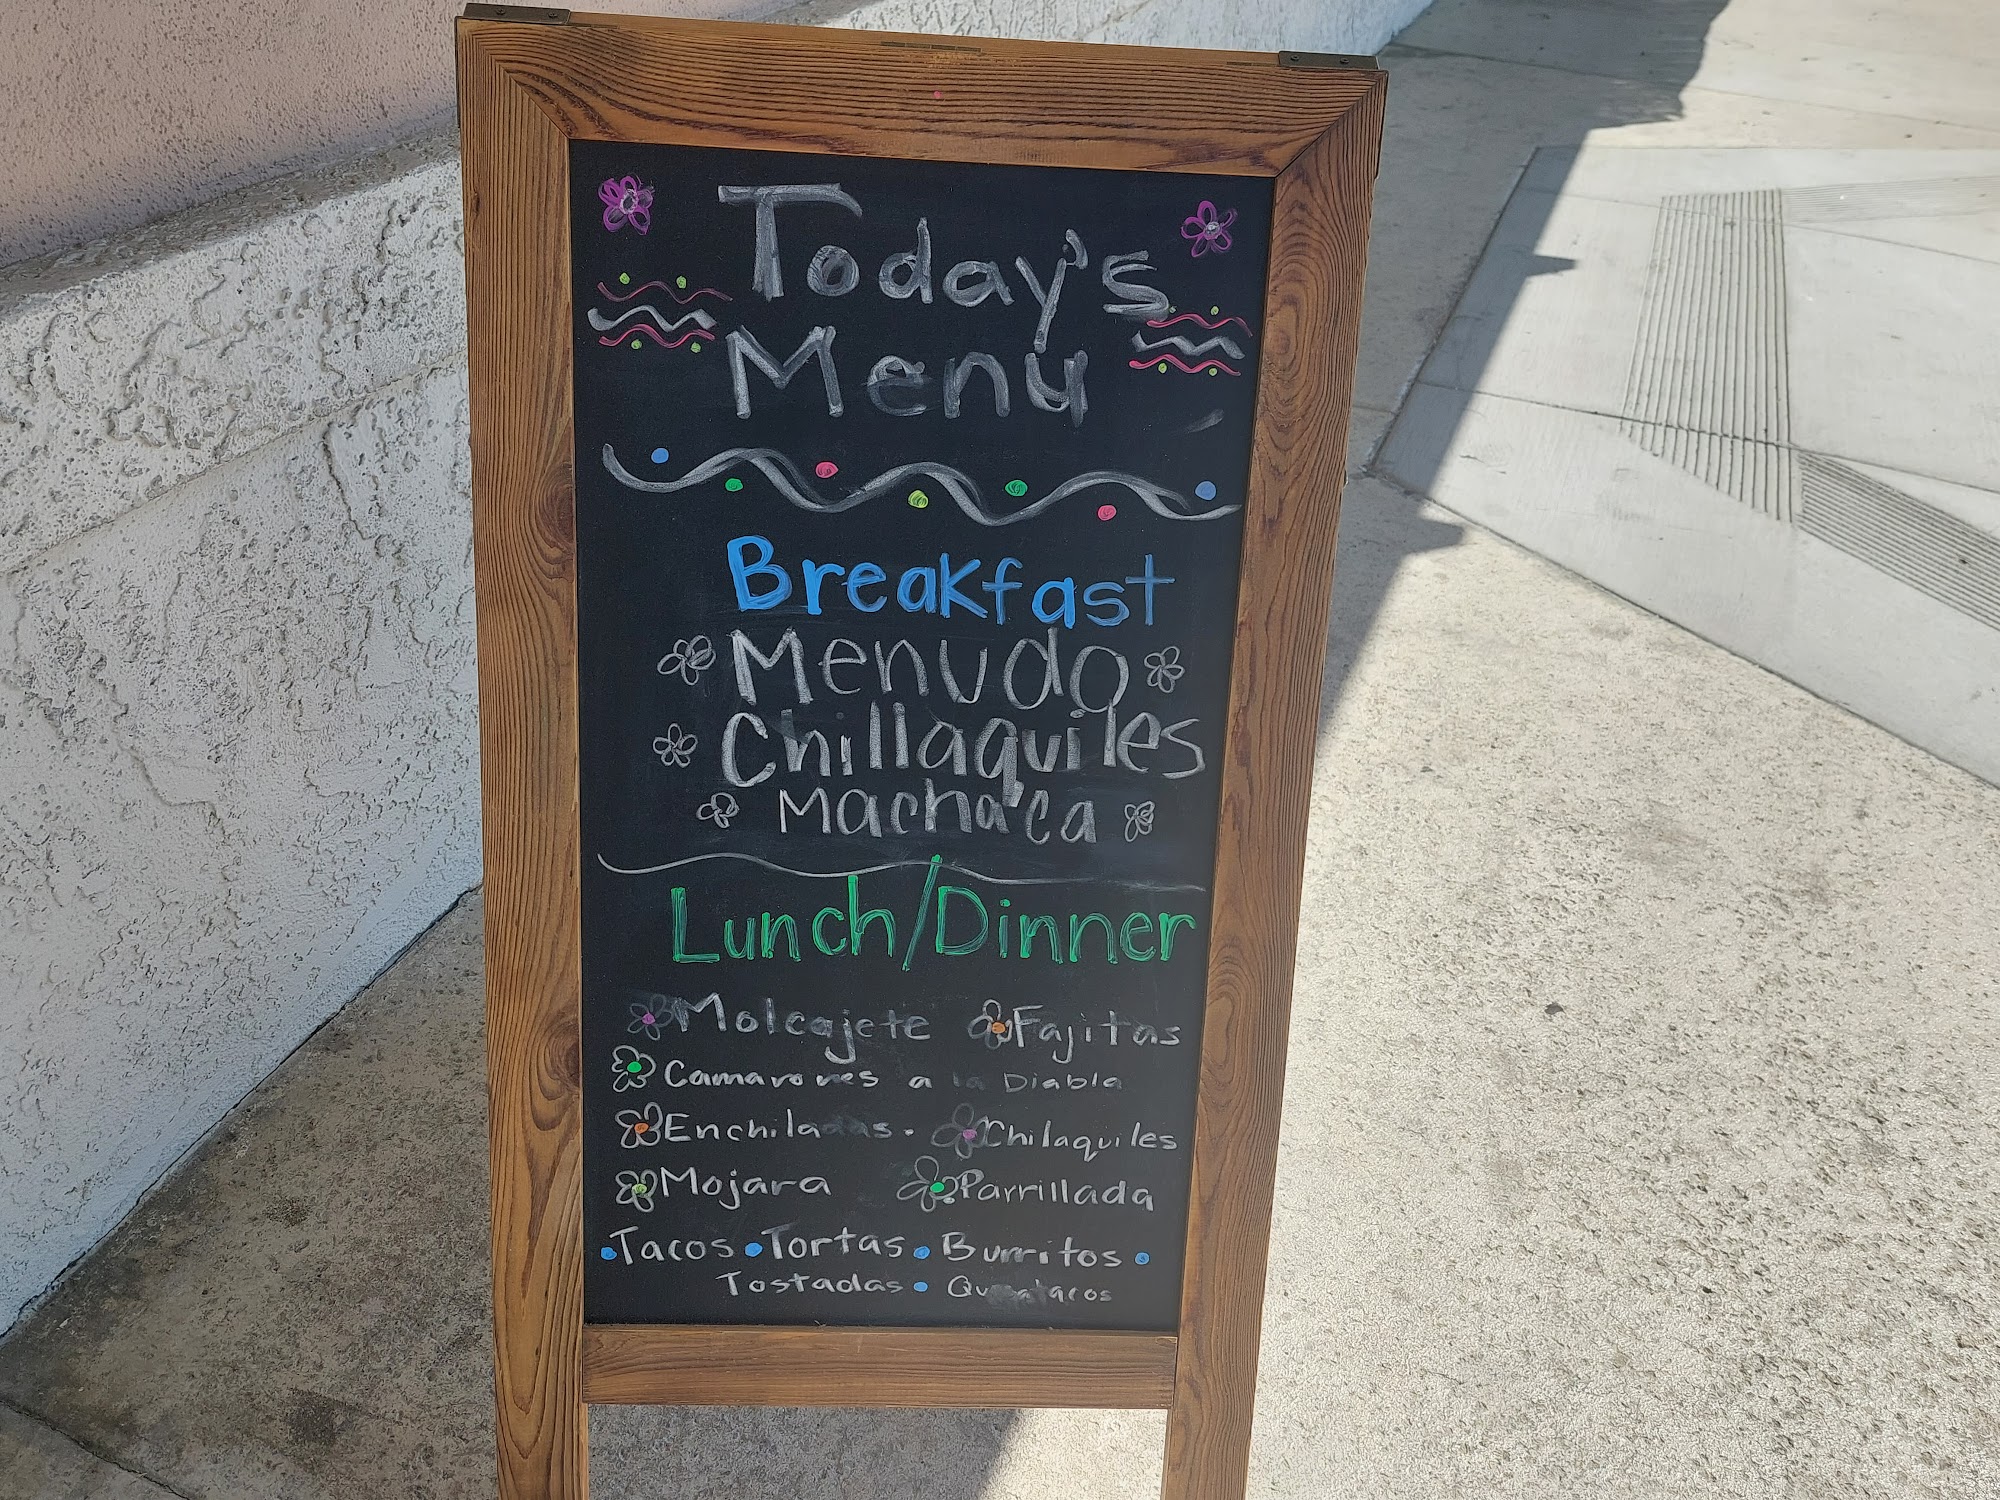 Today's
Menu
Breakfast
Menudo
Chillaquiles
Machaca
Lunch/Dinner
Molcajete Fajitas
Camarones a la Diabla
Enchiladas. Chilaquiles
Mojara Parrillada
•Tacos •Tortas • Burritos •
Tostadas •